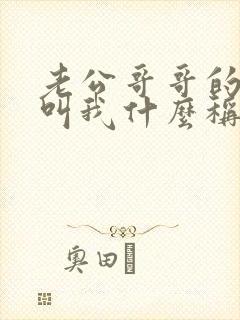 老公哥哥的
叫我什麼稱
奧田